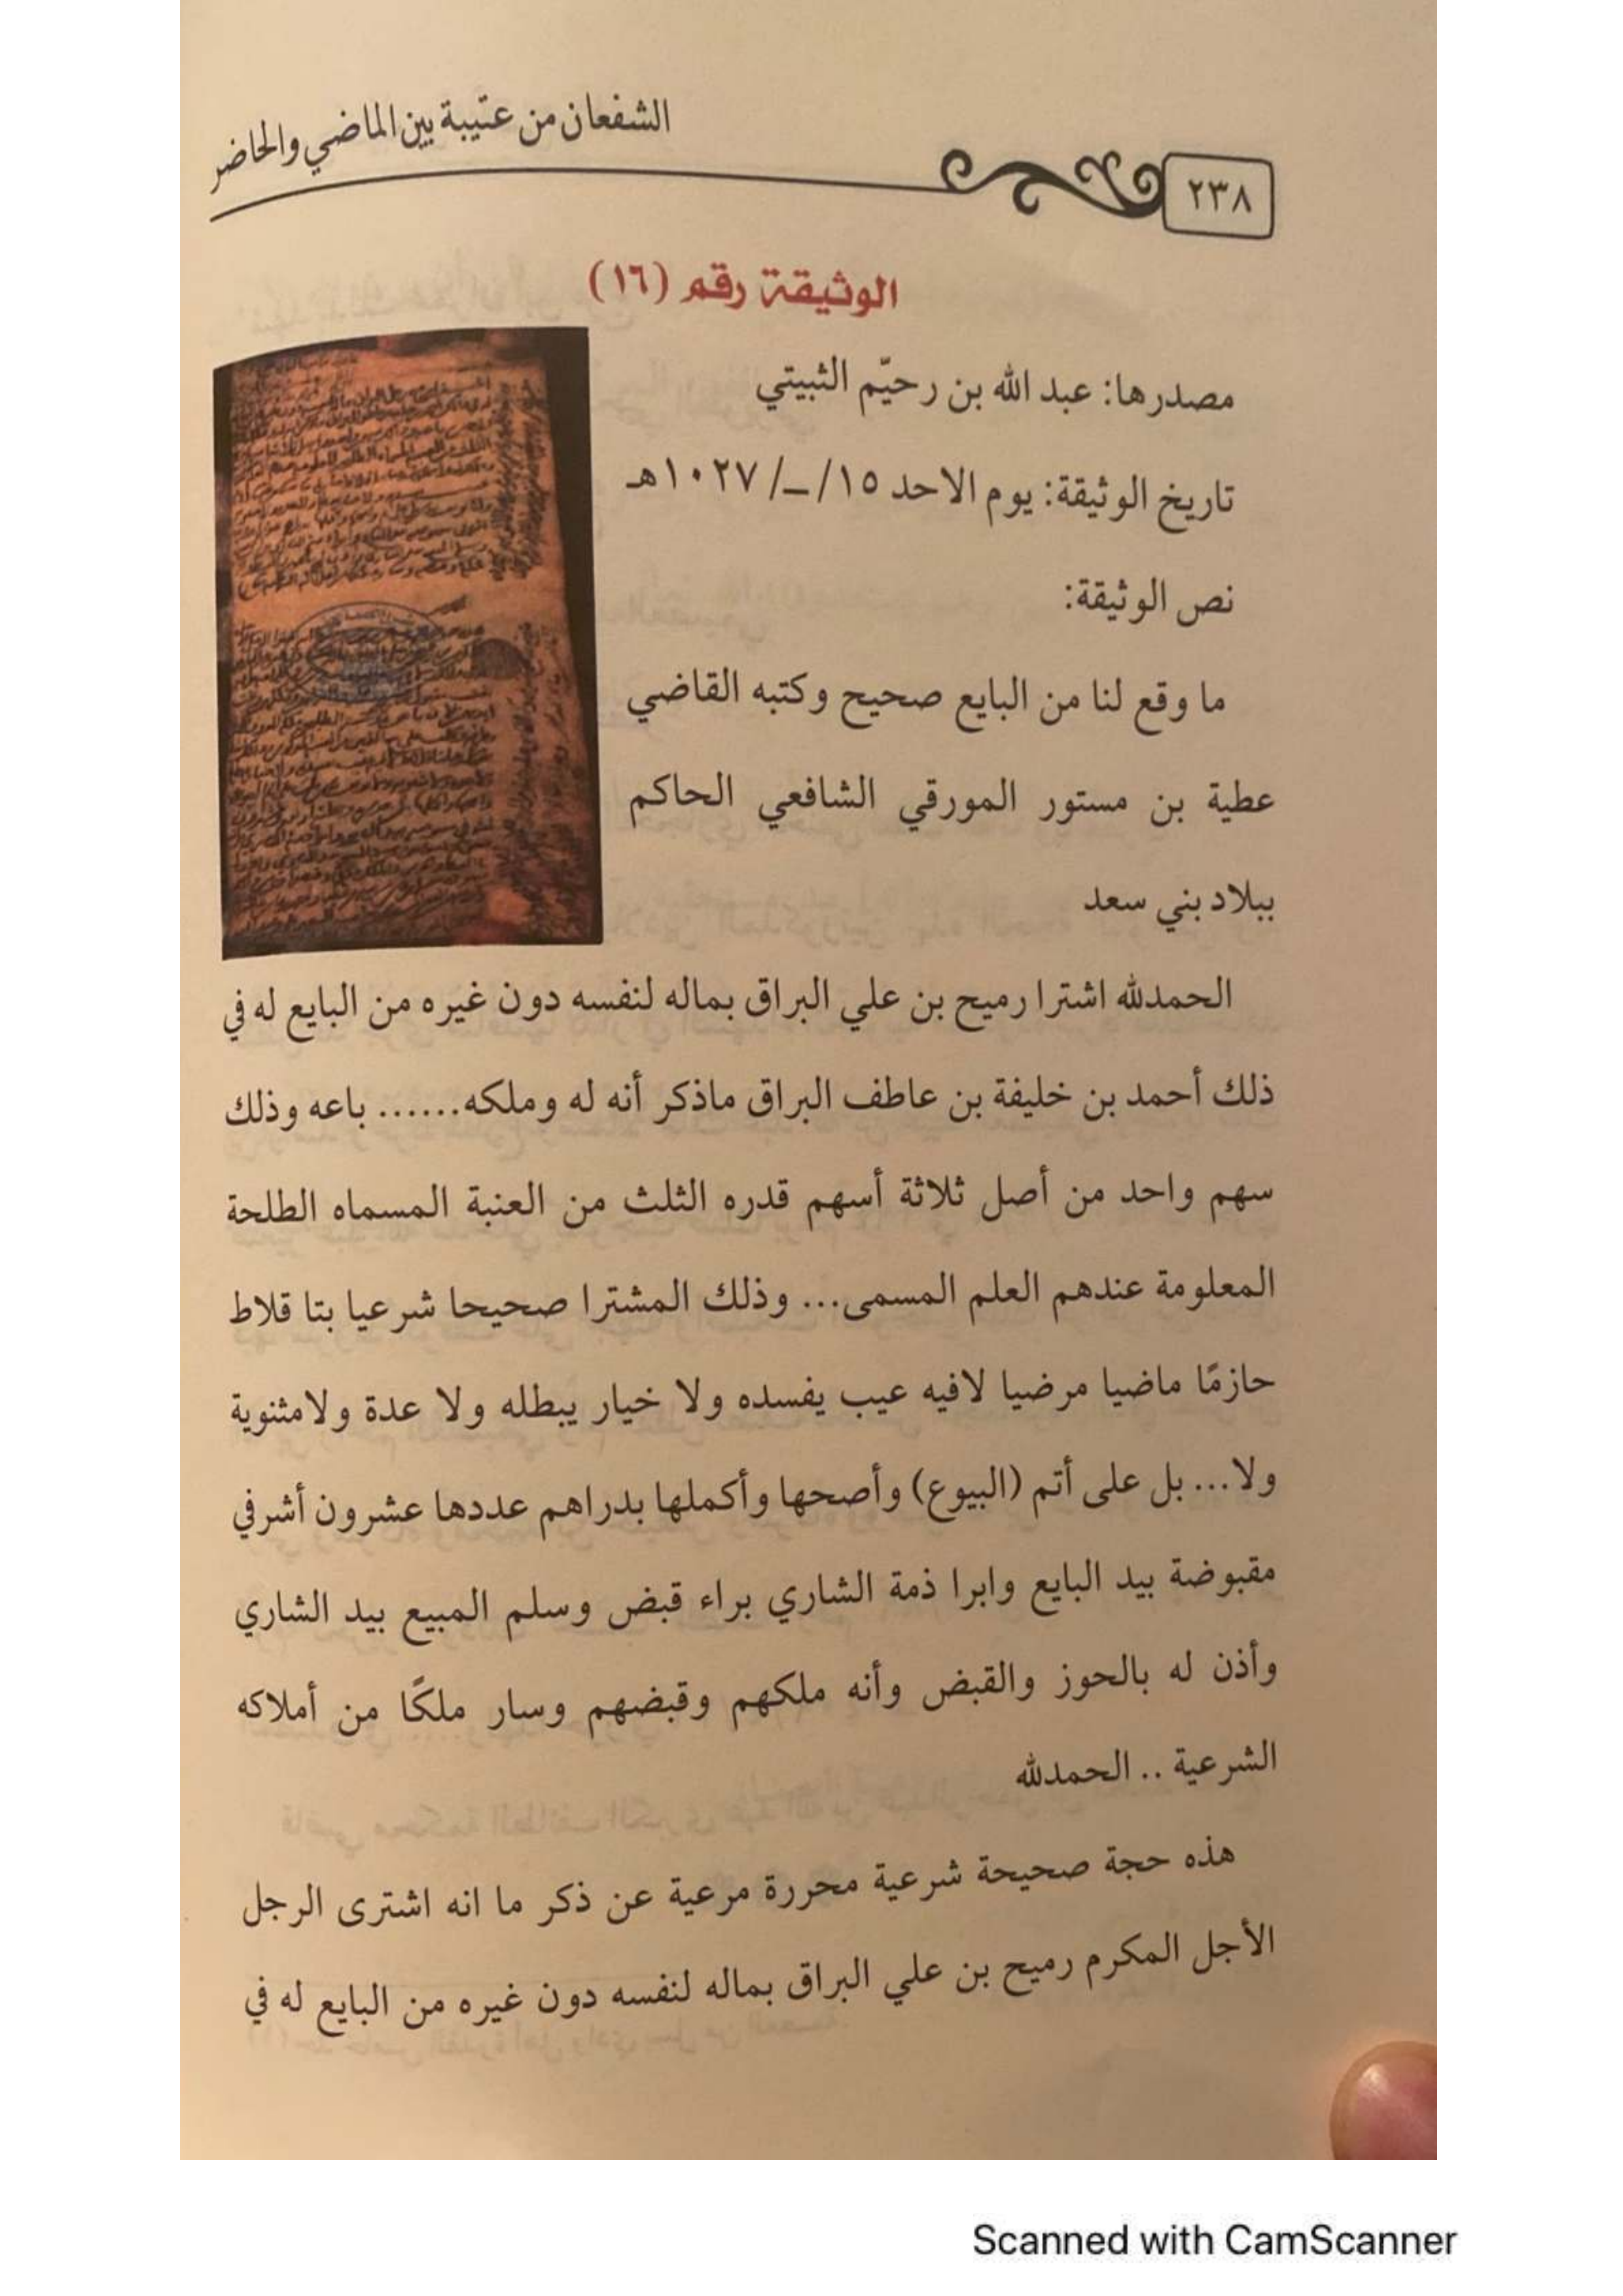 الشفعان من عتيبة بين الماضي والحاضر
٢٣٨
الوثيقة رقم (١٦)
مصدرها: عبد الله بن رحيّم الثبيتي
تاريخ الوثيقة: يوم الاحد ١٥/ _/ ١٠٢٧هـ
نص الوثيقة:
ما وقع لنا من البايع صحيح وكتبه القاضي
عطية بن مستور المورقي الشافعي الحاكم
ببلاد بني سعد
الحمدلله اشترا رميح بن علي البراق بماله لنفسه دون غيره من البايع له في
ذلك أحمد بن خليفة بن عاطف البراق ماذكر أنه له وملكه...... باعه وذلك
سهم واحد من أصل ثلاثة أسهم قدره الثلث من العنبة المسماه الطلحة
المعلومة عندهم العلم المسمى... وذلك المشترا صحيحا شرعيا بتا قلاط
حازمًا ماضيا مرضيا لافيه عيب يفسده ولا خيار يبطله ولا عدة ولامثنوية
ولا... بل على أتم (البيوع) وأصحها وأكملها بدراهم عددها عشرون أشرفي
مقبوضة بيد البايع وابرا ذمة الشاري براء قبض وسلم المبيع بيد الشاري
وأذن له بالحوز والقبض وأنه ملكهم وقبضهم وسار ملكًا من أملاكه
الشرعية .. الحمدلله
هذه حجة صحيحة شرعية محررة مرعية عن ذكر ما انه اشترى الرجل
الأجل المكرم رميح بن علي البراق بماله لنفسه دون غيره من البايع له في
Scanned with CamScanner